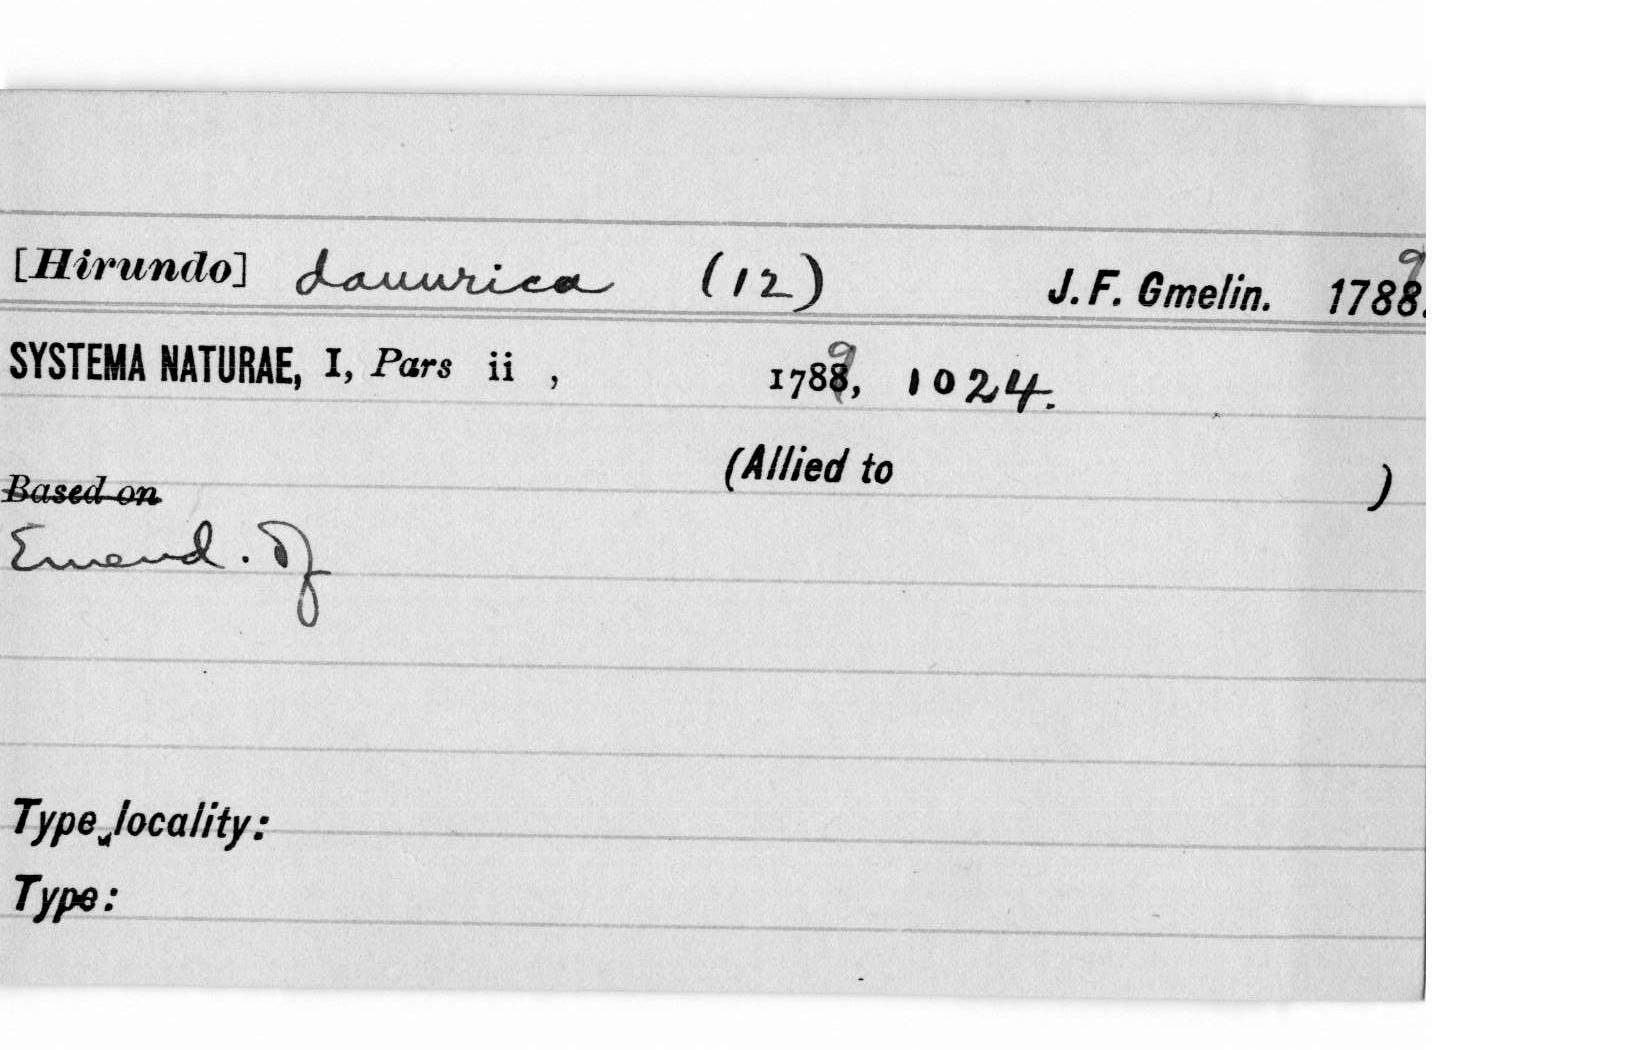 [Hirundo] dauurica (12) J. F. Gmelin. 1789.
SYSTEMA NATURAE, I, Pars ii , 1789, 1024.
(Allied to )
Based on
Emend. of
Type locality:
Type: